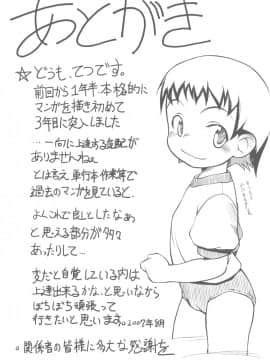 あとがき
☆どうも、てつです。
前回から1年半、本格的に
マンガを描き初めて
3年目に突入しました
…一向に上達する気配が
ありませんねぇ
とはいえ、単行本作業等で
過去のマンガを見ていると、
よくこれで良しとしたなぁ
と思える部分が多々
あったりして…
まだと自覚している内は
上達出来るかな、と思いながら
ぼちぼち頑張って
行きたいと思います。2007年8月
。関係者の皆様に多大な感謝を